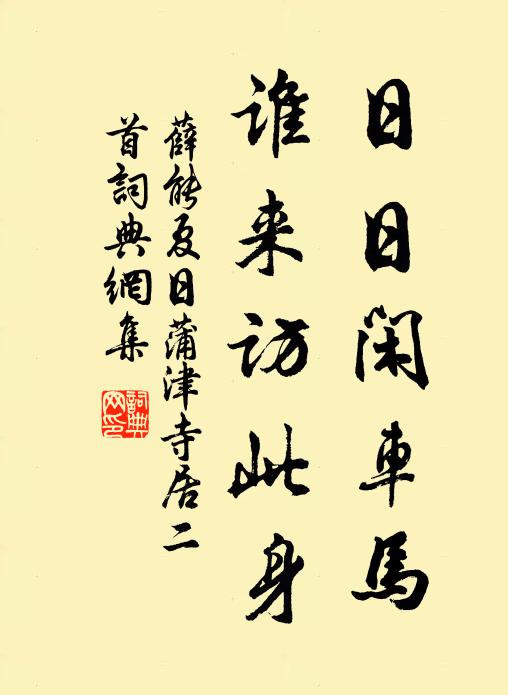 日日閑車馬
誰来訪此身
薛能夏日蒲津寺居二
首詞典網集
詞典
网印